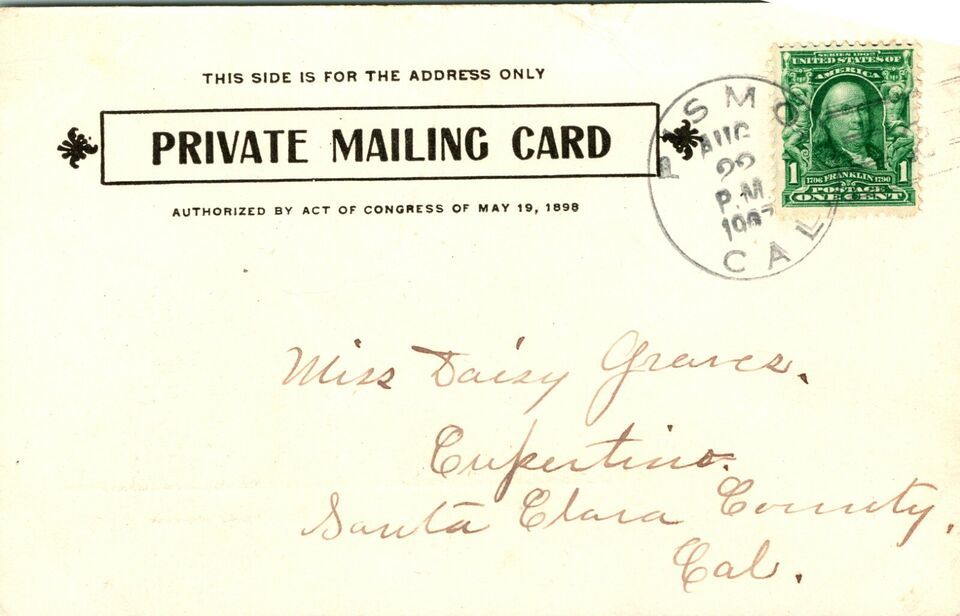 THIS SIDE IS FOR THE ADDRESS ONLY
PRIVATE MAILING CARD
AUTHORIZED BY ACT OF CONGRESS OF MAY 19, 1898
PISMO
AUG
22
P.M.
1907
CAL
SERIES 1902
UNITED STATES OF
AMERICA
1 1
1706 FRANKLIN 1790
POSTAGE
ONE CENT
Miss Daisy Graves.
Cupertino.
Santa Clara County,
Cal.